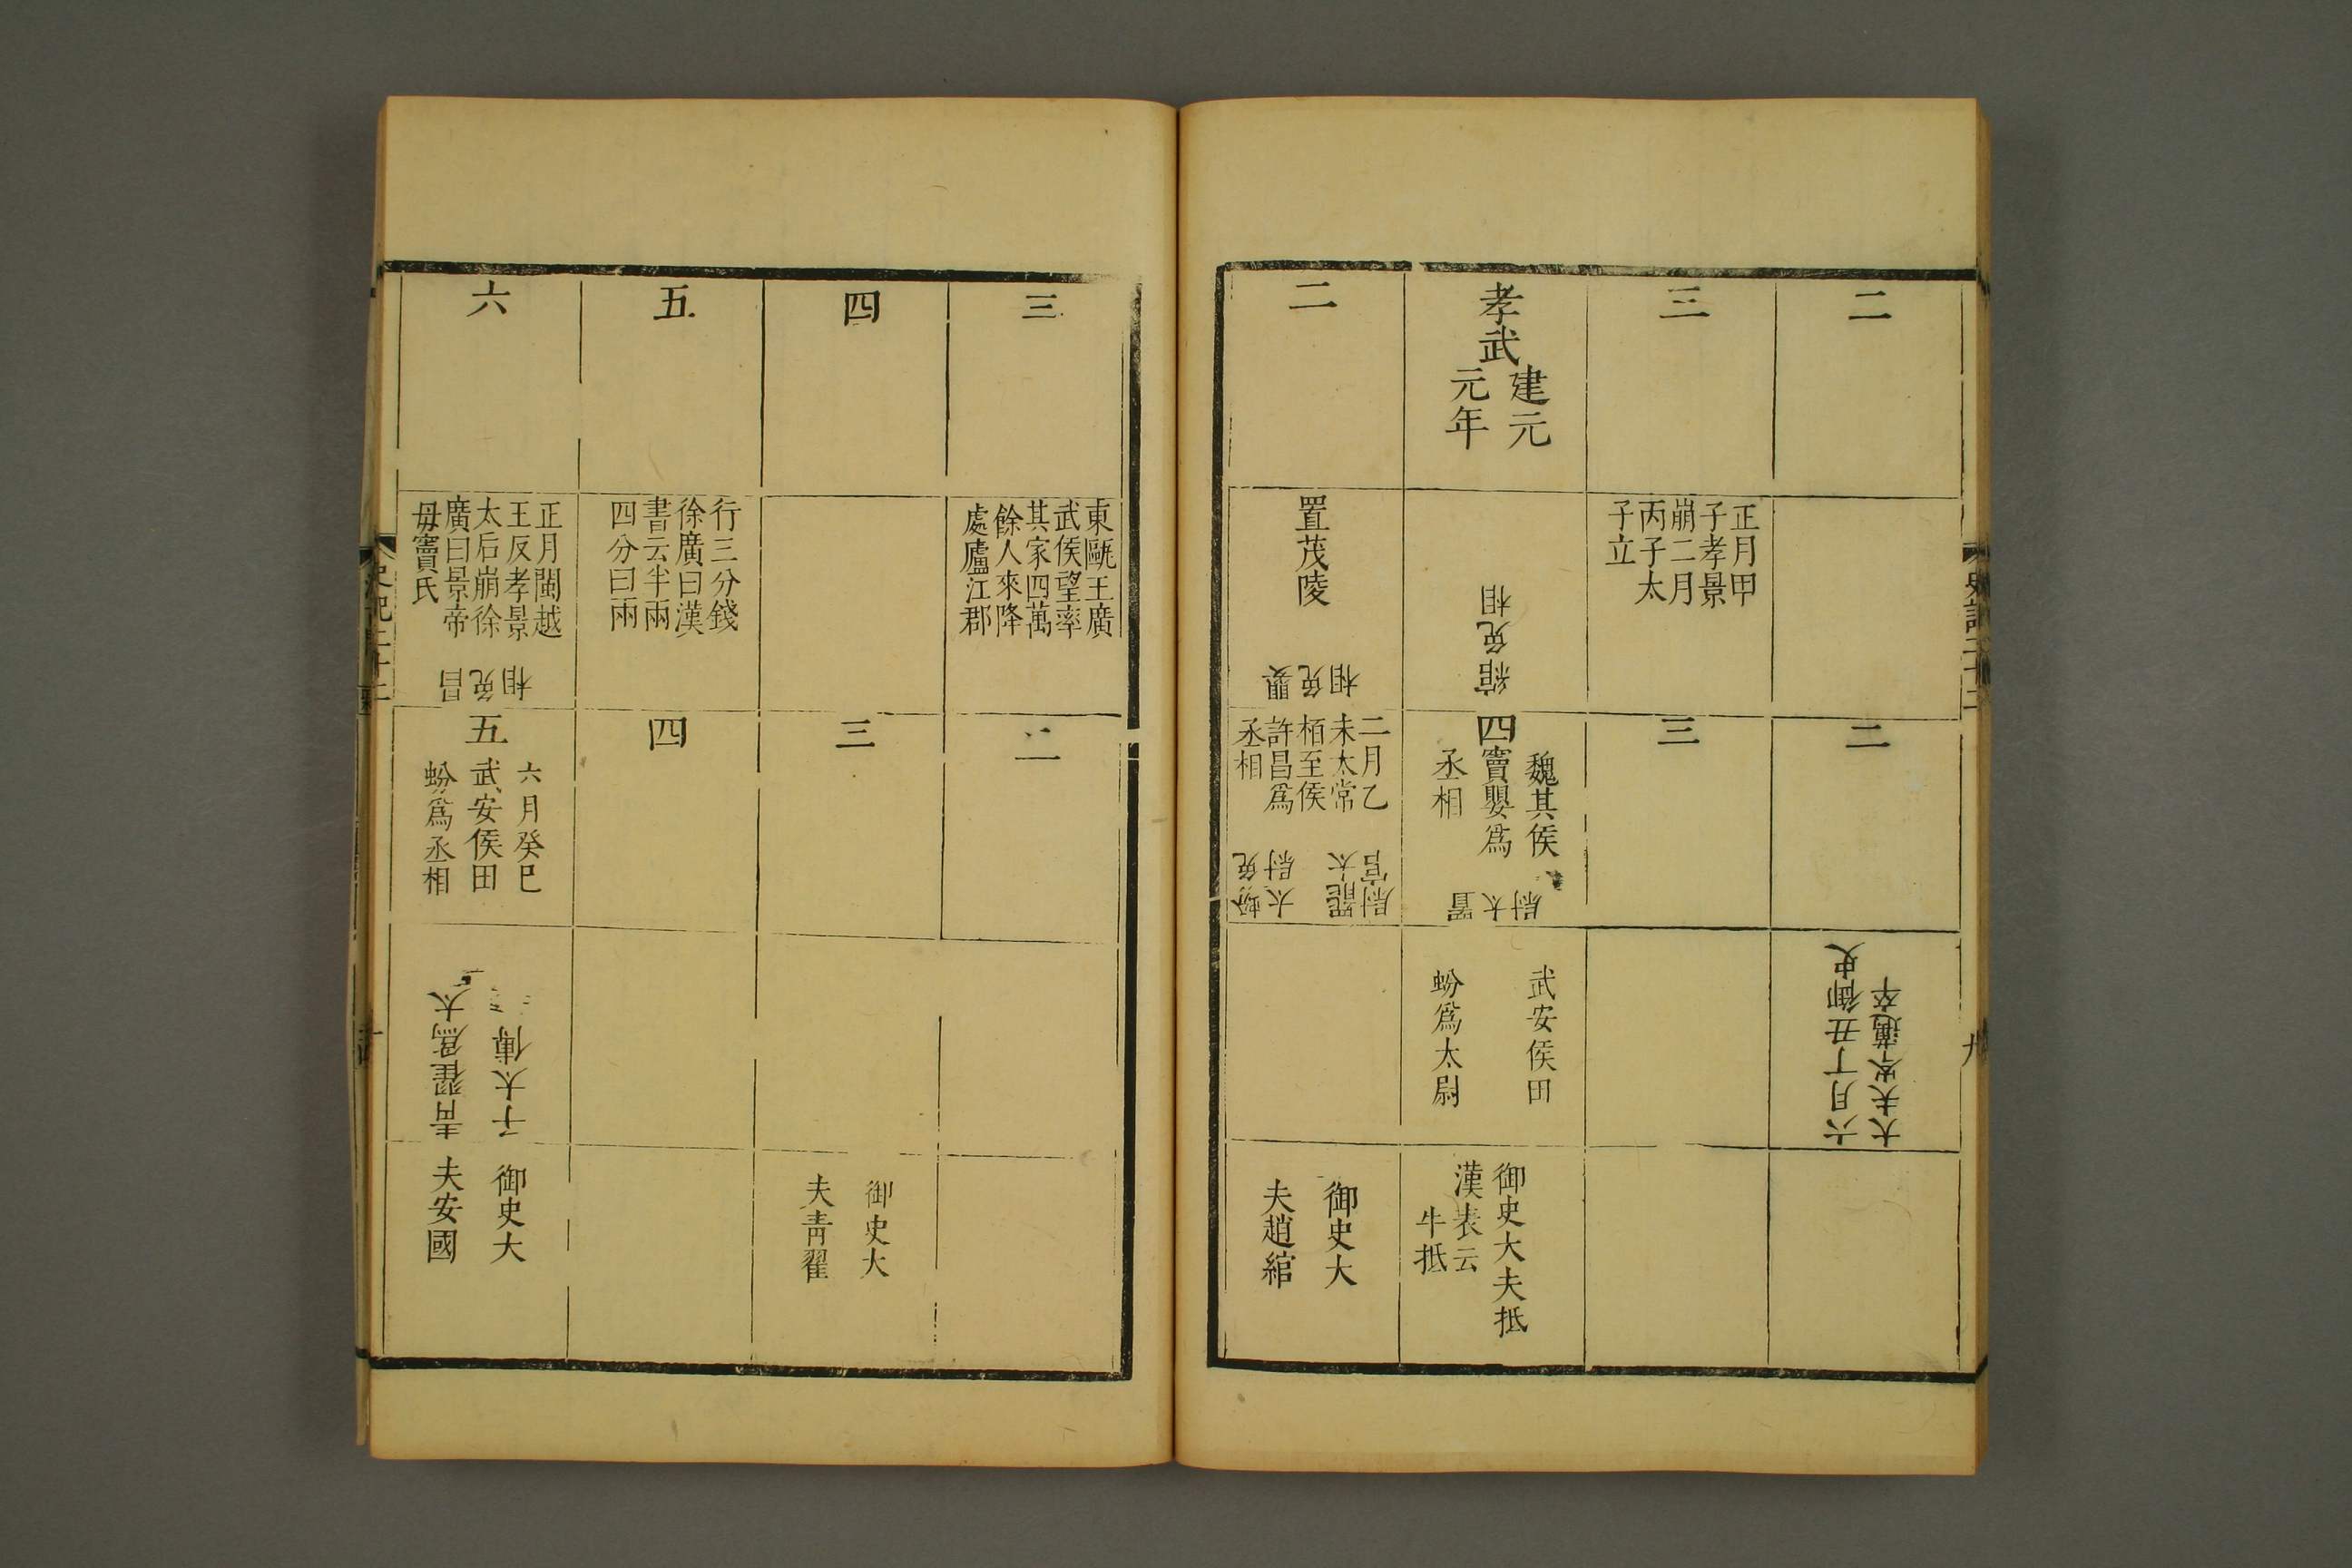 二
二
六月丁丑御史
大夫岑邁卒
三
正月甲
子孝景
崩二月
丙子太
子立
三
孝武
建元
元年
綰免相
四
魏其侯
竇嬰為
丞相
置太尉
武安侯田
蚡為太尉
御史大夫抵
漢表云
牛抵
二
置茂陵
嬰免相
二月乙
未太常
栢至侯
許昌為
丞相
蚡免太尉
罷太尉官
御史大
夫趙綰
三
東甌王廣
武侯望率
其家四萬
餘人來降
處廬江郡
二
四
三
御史大
夫青翟
五
行三分錢
徐廣曰漢
書云半兩
四分曰兩
四
六
正月閩越
王反孝景
太后崩徐
廣曰景帝
毋竇氏
昌免相
五
六月癸巳
武安侯田
蚡為丞相
青翟為太
子太傅
御史大
夫安國
史記二十二
九